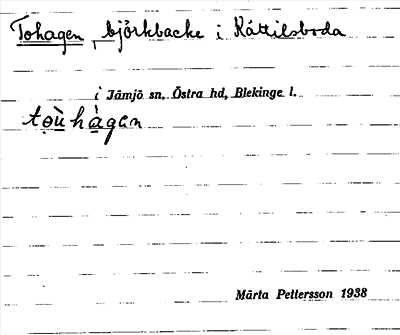 Tohagen, björkbacke i Kättilsboda
i Jämjö sn, Östra hd, Blekinge l.
tọù hàgen
Märta Pettersson 1938